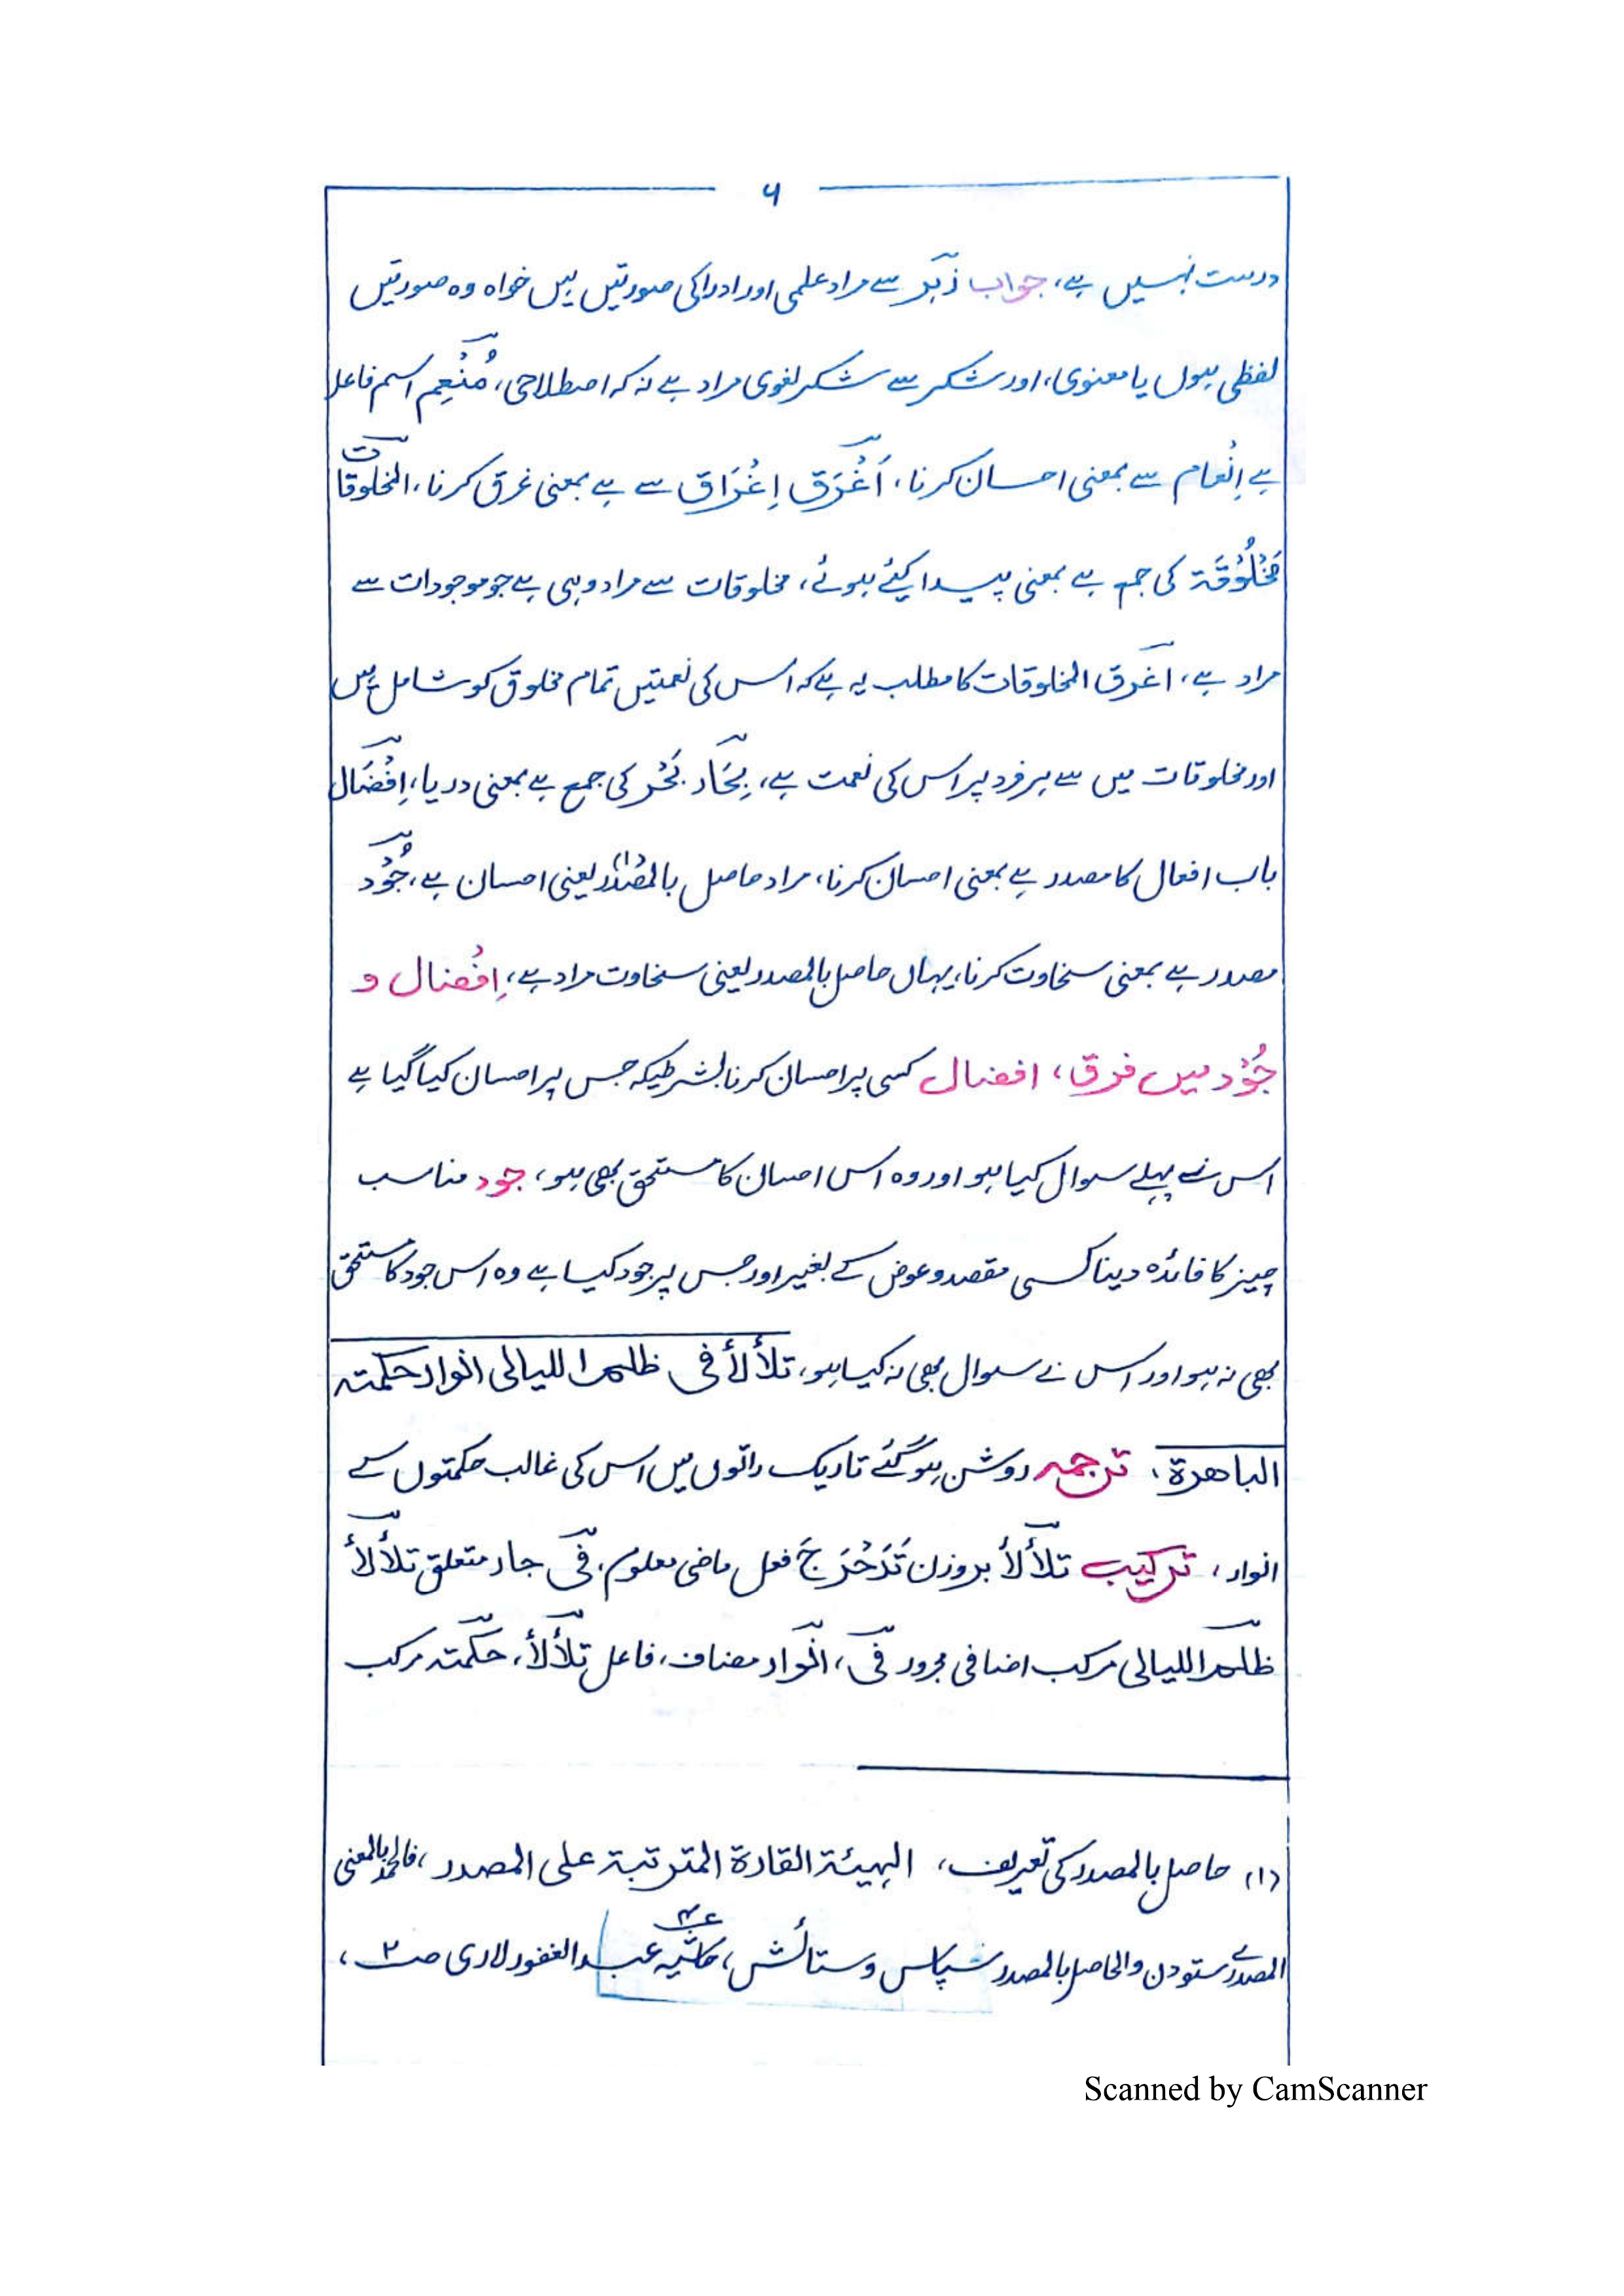 ۶
درست نہیں ہے، جواب زُبَر سے مراد علمی اور ادراکی صورتیں ہیں خواہ وہ صورتیں
لفظی ہوں یا معنوی، اور شکر سے شکر لغوی مراد ہے نہ کہ اصطلاحی، مُنْعِم اسم فاعل
ہے اِنْعام سے بمعنی احسان کرنا، اَغْرَق اِغْرَاق سے ہے بمعنی غرق کرنا، المخلوقات
مَخْلُوْقَة کی جمع ہے بمعنی پیدا کیئے ہوئے، مخلوقات سے مراد وہی ہے جو موجودات سے
مراد ہے، اغرق المخلوقات کا مطلب یہ ہے کہ اس کی نعمتیں تمام مخلوق کو شامل ہیں
اور مخلوقات میں سے ہر فرد پر اس کی نعمت ہے، بِحَار بَحْر کی جمع ہے بمعنی دریا، اِفْضَال
باب افعال کا مصدر ہے بمعنی احسان کرنا، مراد حاصل بالمصدر (۱) یعنی احسان ہے، جُوْد
مصدر ہے بمعنی سخاوت کرنا، یہاں حاصل بالمصدر یعنی سخاوت مراد ہے، اِفْضال و
جُوْد میں فرق، افضال کسی پر احسان کرنا بشرطیکہ جس پر احسان کیا گیا ہے
اس نے پہلے سوال کیا ہو اور وہ اس احسان کا مستحق بھی ہو، جود مناسب
چیز کا فائدہ دینا کسی مقصد و عوض کے بغیر اور جس پر جود کیا ہے وہ اس جود کا مستحق
بھی نہ ہو اور اس نے سوال بھی نہ کیا ہو، تلألأ فی ظلم اللیالی انوار حکمته
الباهرة، ترجمہ روشن ہو گئے تاریک راتوں میں اس کی غالب حکمتوں کے
انوار، ترکیب تلألأ بروزن تَدَحْرَجَ فعل ماضی معلوم، فی جار متعلق تلألأ
ظلم اللیالی مرکب اضافی مجرور فی، انوار مضاف، فاعل تلألأ، حکمته مرکب
(۱) حاصل بالمصدر کی تعریف، الهيئة القارة المترتبة على المصدر، فالحمد بالمعنی
المصدری ستودن والحاصل بالمصدر سپاس و ستائش، حاشیہ عبد الغفور لاری صـ ۲،
Scanned by CamScanner